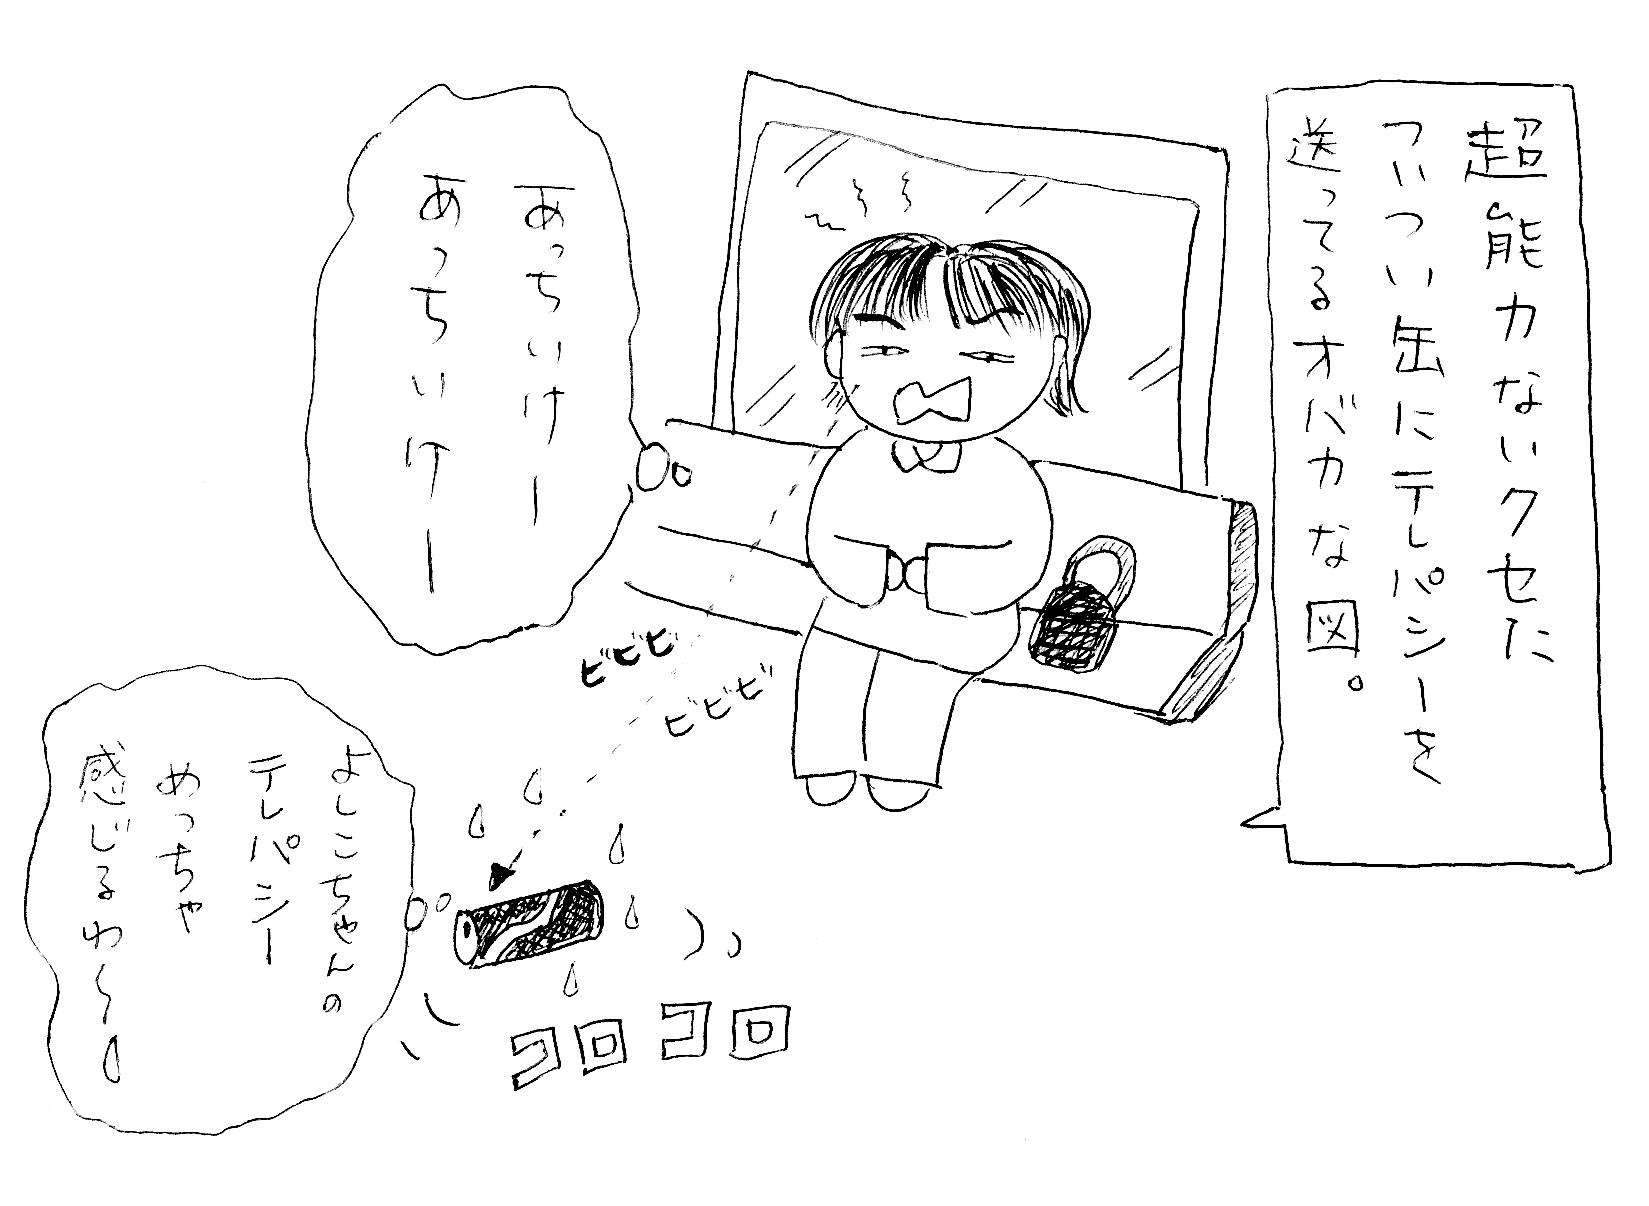 超能力ないクセに
ついつい缶にテレパシーを
送ってるオバカな図。
あっちいけー
あっちいけー
ビビビ
ビビビ
よしこちゃんの
テレパシー
めっちゃ
感じるわ〜
コロコロ